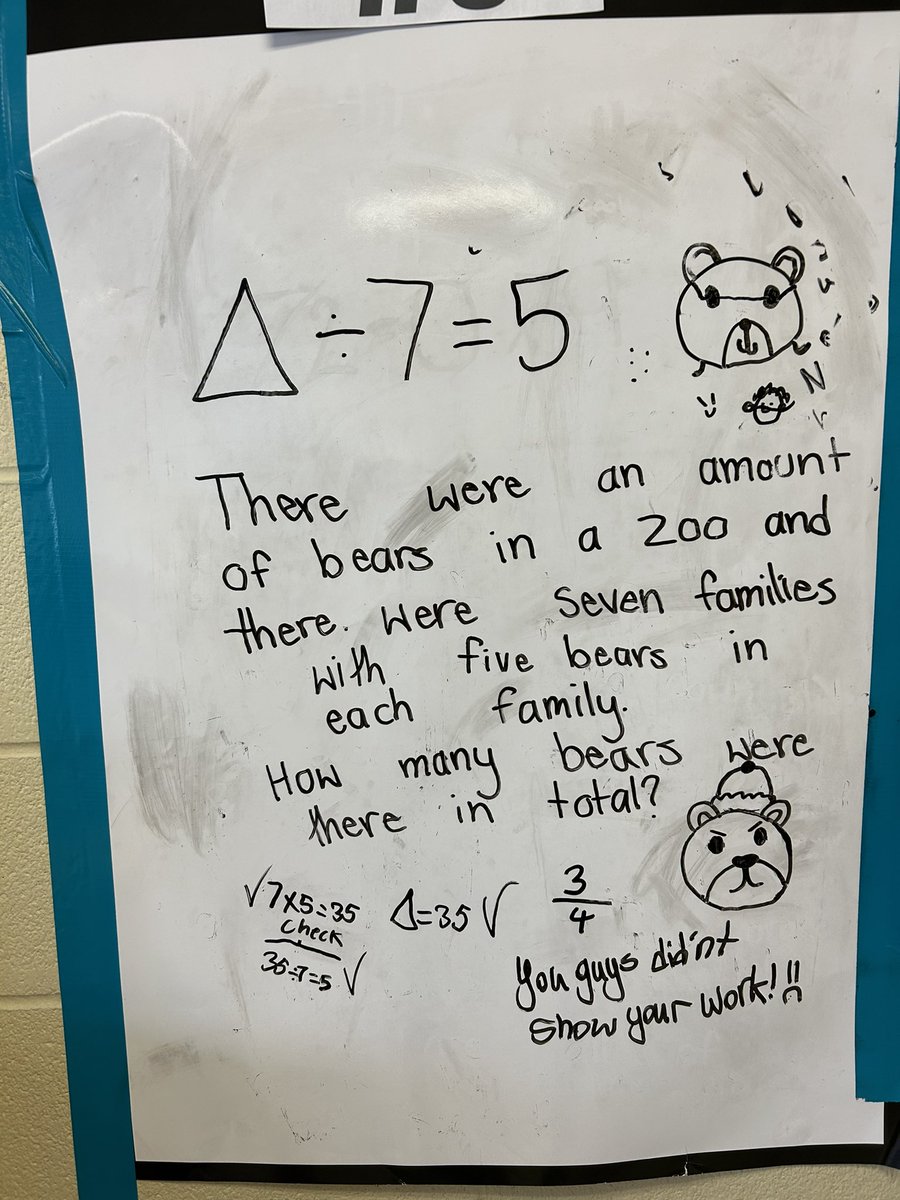 △ ÷ 7 = 5
There were an amount
of bears in a zoo and
there. were seven families
with five bears in
each family.
How many bears were
there in total?
✓ 7x5=35
Check
35÷7=5 ✓
△=35 ✓
3
4
You guys did'nt
show your work!